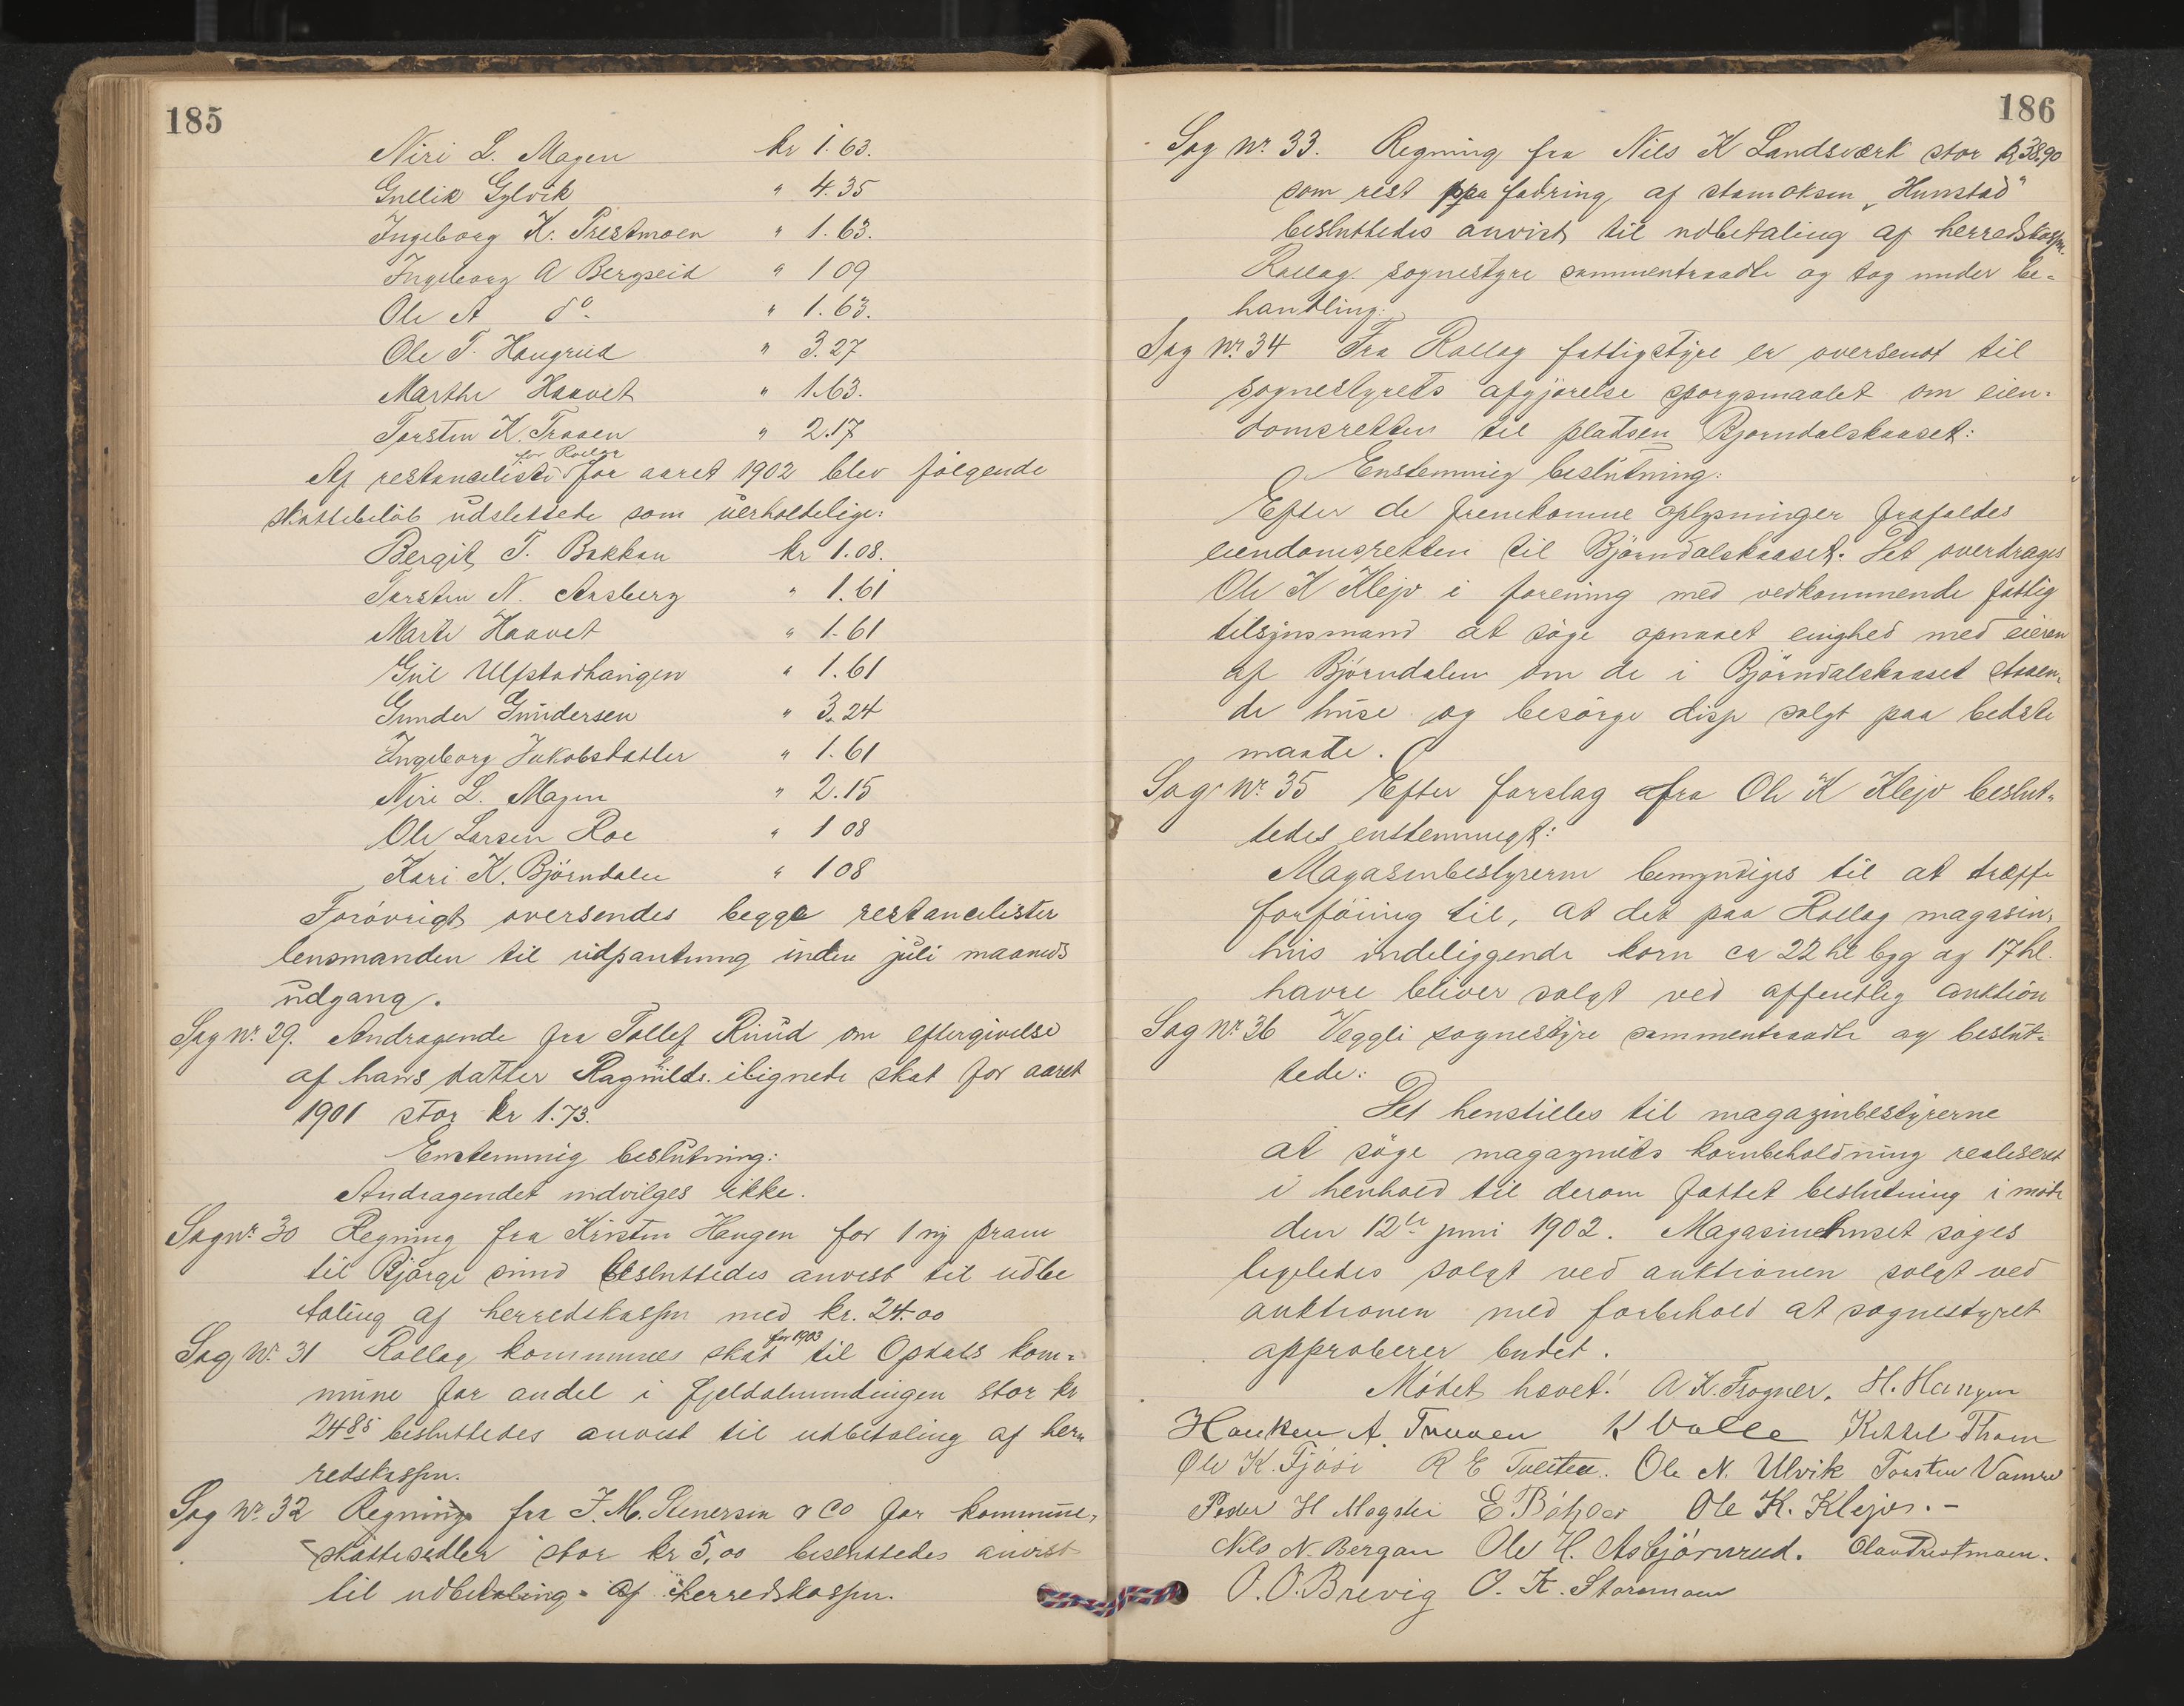 185
Niri L. Mogen kr 1.63.
Gullik Gylvik " 4.35
Ingeborg K. Prestmoen " 1.63.
Ingeborg A Bergseid " 1 09
Ole A do. " 1.63.
Ole T. Haugrud " 3.27
Marthe Haavet " 1.63.
Torsten K. Traaen " 2.17
for Rollag
Af restanceliste for aaret 1902 blev følgende
skattebeløb udslettede som uerholdelige:
Bergit T. Bakkan kr 1.08.
Torsten N. Aasberg " 1.61
Marte Haavet " 1.61
Gul Ulfstadhaugen " 1.61
Gunder Gundersen " 3.24
Ingeborg Jakobskaller " 1.61
Niri L. Mogen " 2.15
Ole Larsen Roe " 1 08
Kari K. Björndalen " 1 08
Forövrigt oversendes begge restancelister
lensmanden til udpantning inden juli maaneds
udgang.
Sag nr. 29. Andragende fra Tollef Ruud om eftergivelse
af hans datter Ragnilds ilignede skat for aaret
1901 stor kr 1.73.
Enstemmig beslutning:
Andragendet indvilges ikke.
Sag nr. 30 Regning fra Kristen Haugen for 1 ny pram
til Bjørge sund besluttedes anvist til udbe
taling af herredskassen med kr. 24.00
for 1903
Sag Nr. 31 Rollag kommunes skat til Opdals kom=
mune for andel i fjeldalmindingen stor kr
24 85 besluttedes anvist til udbetaling af her
redskassen.
Sag Nr. 32 Regning fra J. M. Stenersen & Co for kommune=
skattesedler stor kr 5,00 besluttedes anvist
til udbetaling af herredskassen.
186
Sag Nr. 33. Regning fra Nils K Landsværk stor kr 38.90
som rest paa fodring af stamoksen „Hunstad"
besluttedes anvist til udbetaling af herredskassen.
Rollag sognestyre sammentraadte og tog under be=
handling:
Sag Nr. 34 Fra Rollag fattigstyre er oversendt til
sognestyrets afgjørelse spørgsmaalet om eien=
domsretten til pladsen Bjørndalskaaset:
Enstemmig beslutning:
Efter de fremkomne oplysninger frafaldes
eiendomsretten til Björndalskaaset. Det overdrages
Ole K Klejv i forening med vedkommende fattig
tilsynsmand at söge opnaaet enighed med eieren
af Björndalen om de i Björndalskaaset staaen=
de huse og besörge disse solgt paa bedste
maade.
Sag Nr. 35 Efter forslag fra Ole K Klejv beslut=
tedes enstemmigt:
Magasinbestyreren bemyndiges til at træffe
forföining til, at det paa Rollag magasin=
hus indeliggende korn ca 22 hl byg og 17 hl.
havre bliver solgt ved offentlig auktion
Sag Nr. 36 Veggli sognestyre sammentraadte og beslut=
tede:
Det henstilles til magazinbestyrerne
at söge magazinets kornbeholdning realiseret
i henhold til derom fattet beslutning i möde
den 12te juni 1902. Magasinehuset söges
ligeledes solgt ved auktionen solgt ved
auktionen med forbehold at sognestyret
approberer budet.
Mödet hævet! A K. Frogner. H. Haugen
Haaken A. Traaen K Valle Kittel Thoen
Ole K. Fjösi R E Tveiten. Ole N. Ulvik Torsten Vamre
Peder H Mogslei E. Böhver Ole K. Klejv. -
Nils N. Bergan Ole H. Asbjörnrud. Olav Prestmoen.
O. O. Brevig O. K. Stormoen